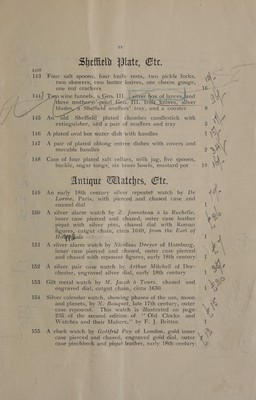 Sheffield Plate, Etc.
LOT
143 Four salt spoons, four knife rests, two pickle forks,
two skewers, two butter knives, one cheese gouge,
one nut crackers 16
144 Two wine funnels, a Geo. III. silver box of knives and
three mother o' pearl Geo. III. fruit knives, silver
blades, a Sheffield snuffers' tray, and a coaster 8
145 An old Sheffield plated chamber candlestick with
extinguisher, and a pair of snuffers and tray 3
146 A plated oval box water dish with handles 1
147 A pair of plated oblong entree dishes with covers and
movable handles 2
148 Case of four plated salt cellars, milk jug, five spoons,
buckle, sugar tongs, six brass bowls, mustard pot 18
Antique Watches, Etc.
149 An early 18th century silver repeater watch by De
Lorme, Paris, with pierced and chased case and
enamel dial
150 A silver alarm watch by Z. Jonneteau à la Rochelle,
inner case pierced and chased, outer case leather
piqué with silver pins, chased dial with Roman
figures, catgut chain, circa 1640, from the Earl of
151 A silver alarm watch by Nicolaus Dreyer of Hamburg,
inner case pierced and chased, outer case pierced
and chased with repoussé figures, early 18th century
152 A silver pair case watch by Arthur Mitchell of Dorchester,
engraved silver dial, early 18th century
153 Gilt metal watch by M. Jacob à Tours, chased and
engraved dial, catgut chain, circa 1630
154 Silver calendar watch, showing phases of the sun, moon
and planets, by N. Bouquet, late 17th century, outer
case repoussé. This watch is illustrated on page
235 of the second edition of "Old Clocks and
Watches and their Makers," by F. J. Britten
155 A clock watch by Gottfrid Poy of London, gold inner
case pierced and chased, engraved gold dial, outer
case pinchbeck and piqué leather, early 18th century